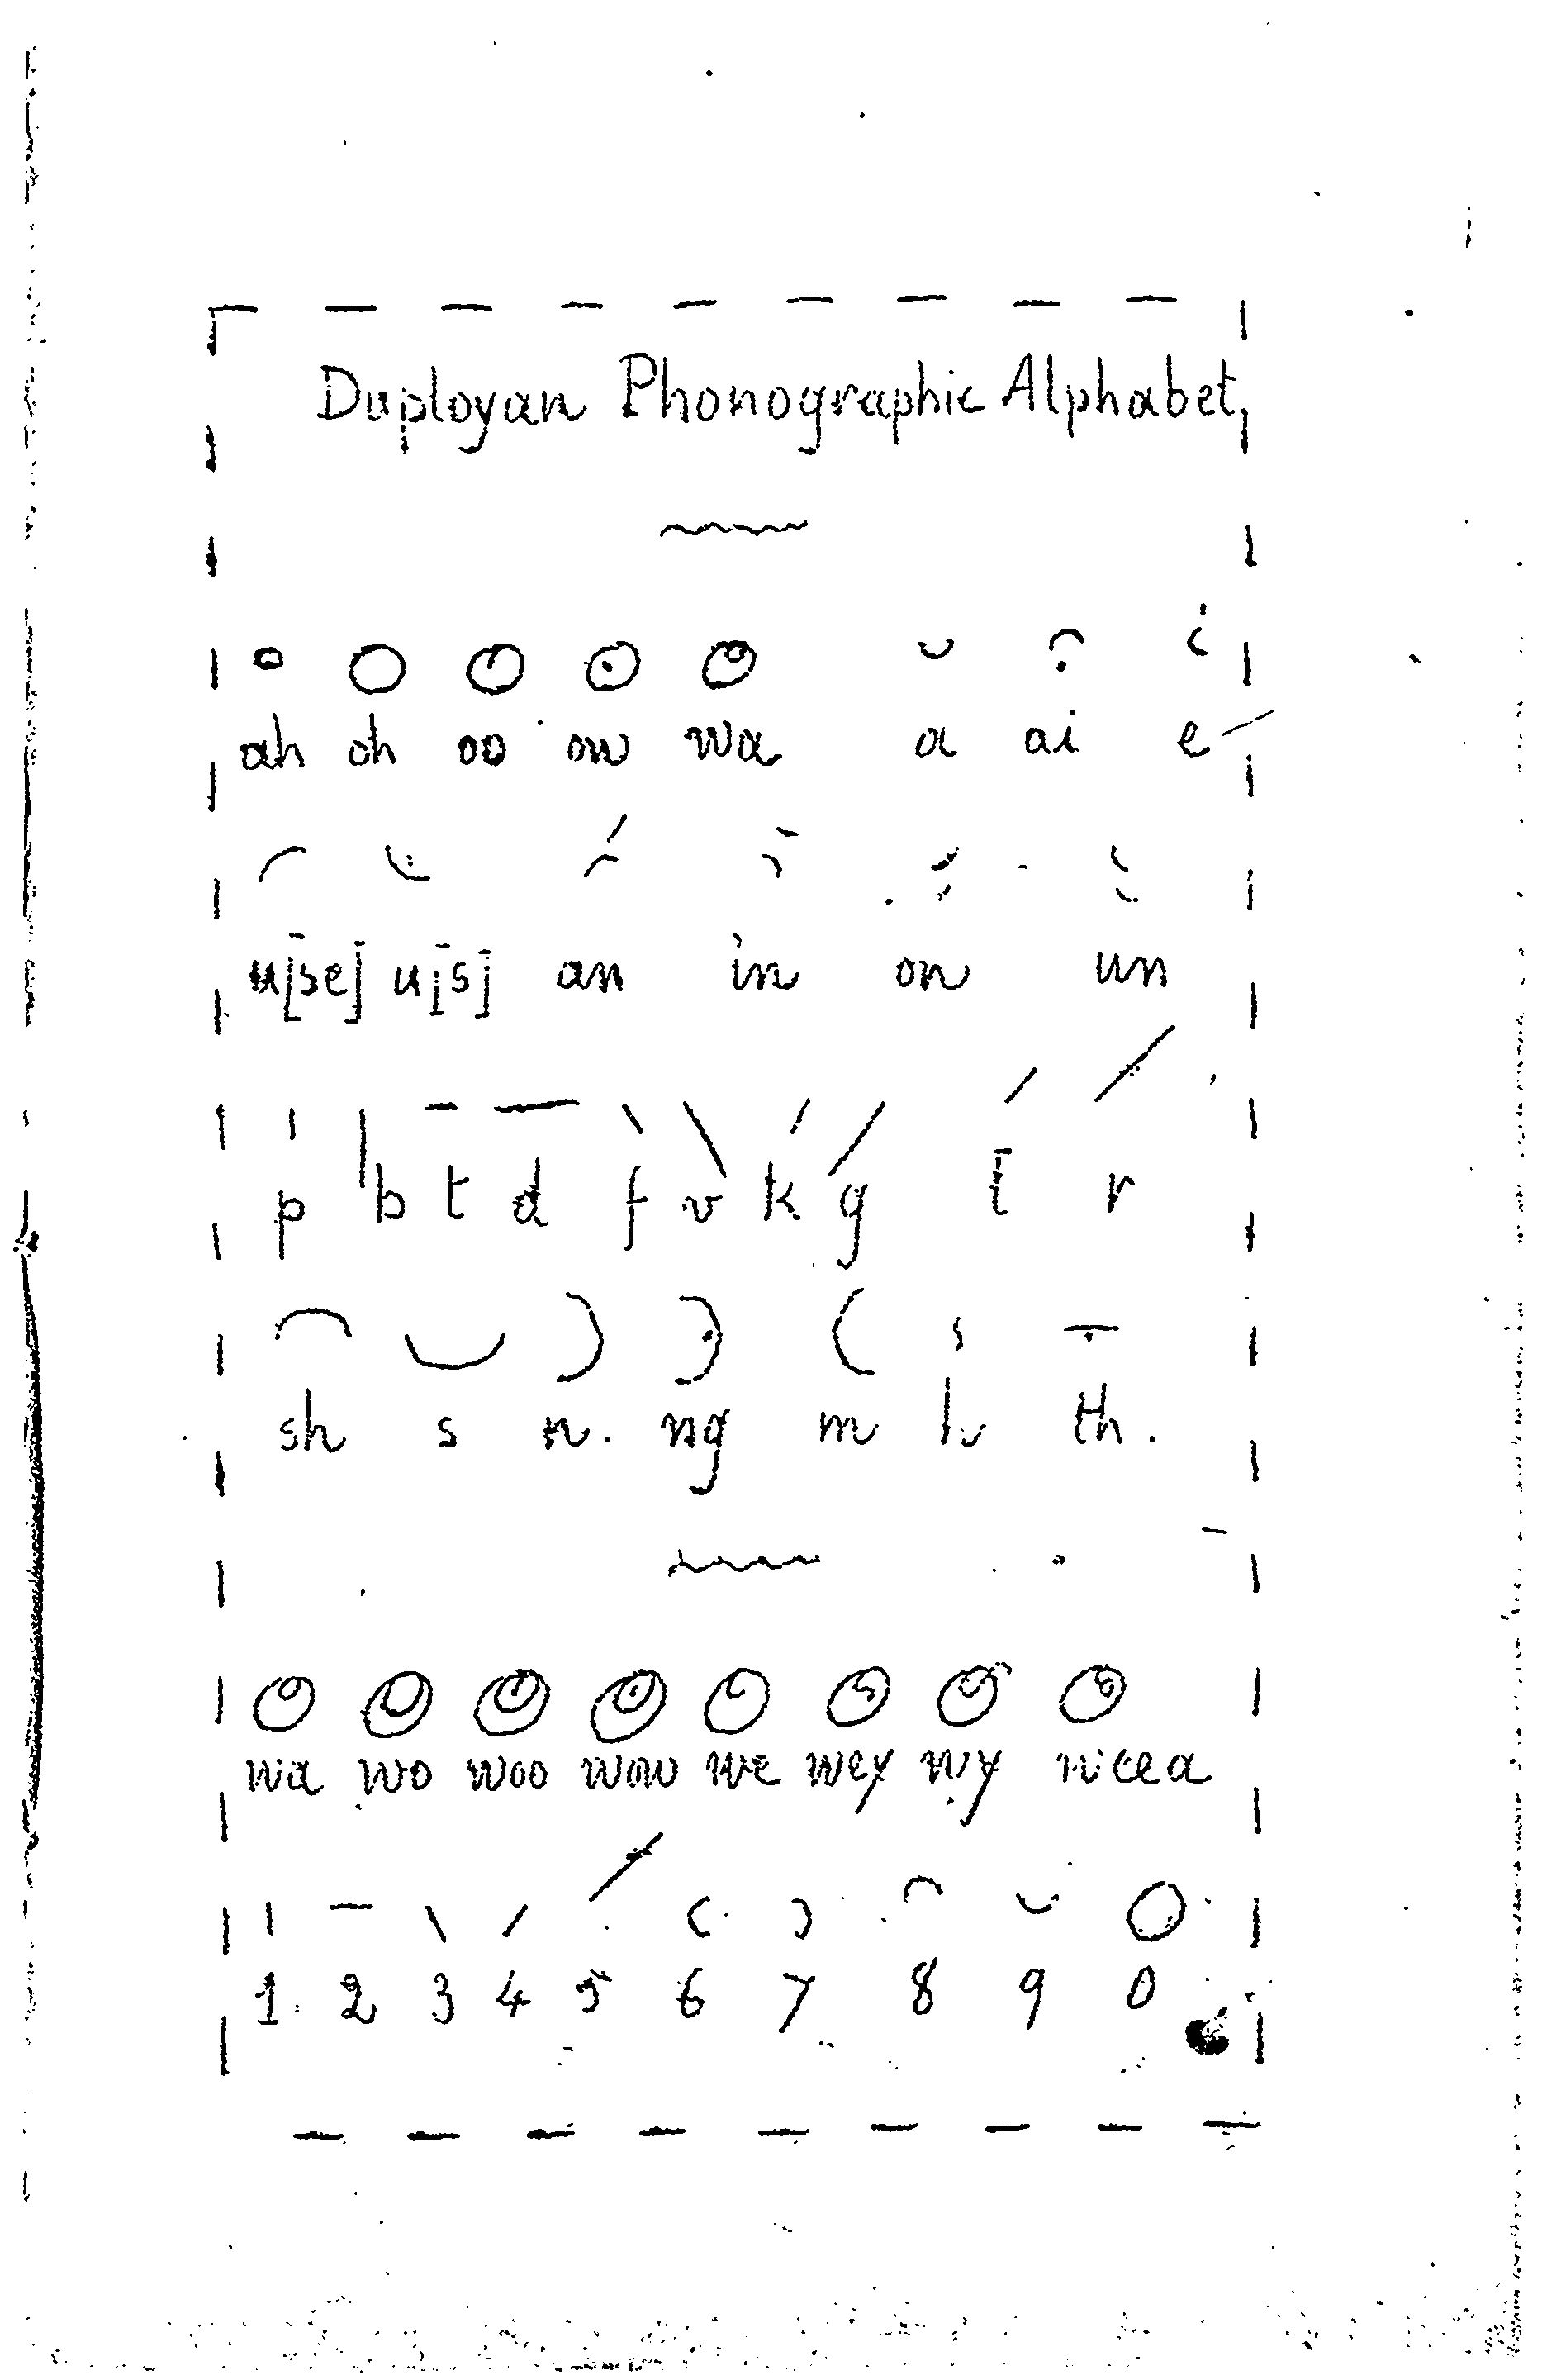 Duployan Phonographic Alphabet,
ah oh oo ow wa a ai e
u[se] u[s] an in on un
p b t d f v k g l r
sh s n. ng m h th.
wa wo woo wow we wey wy
1 2 3 4 5 6 7 8 9 0